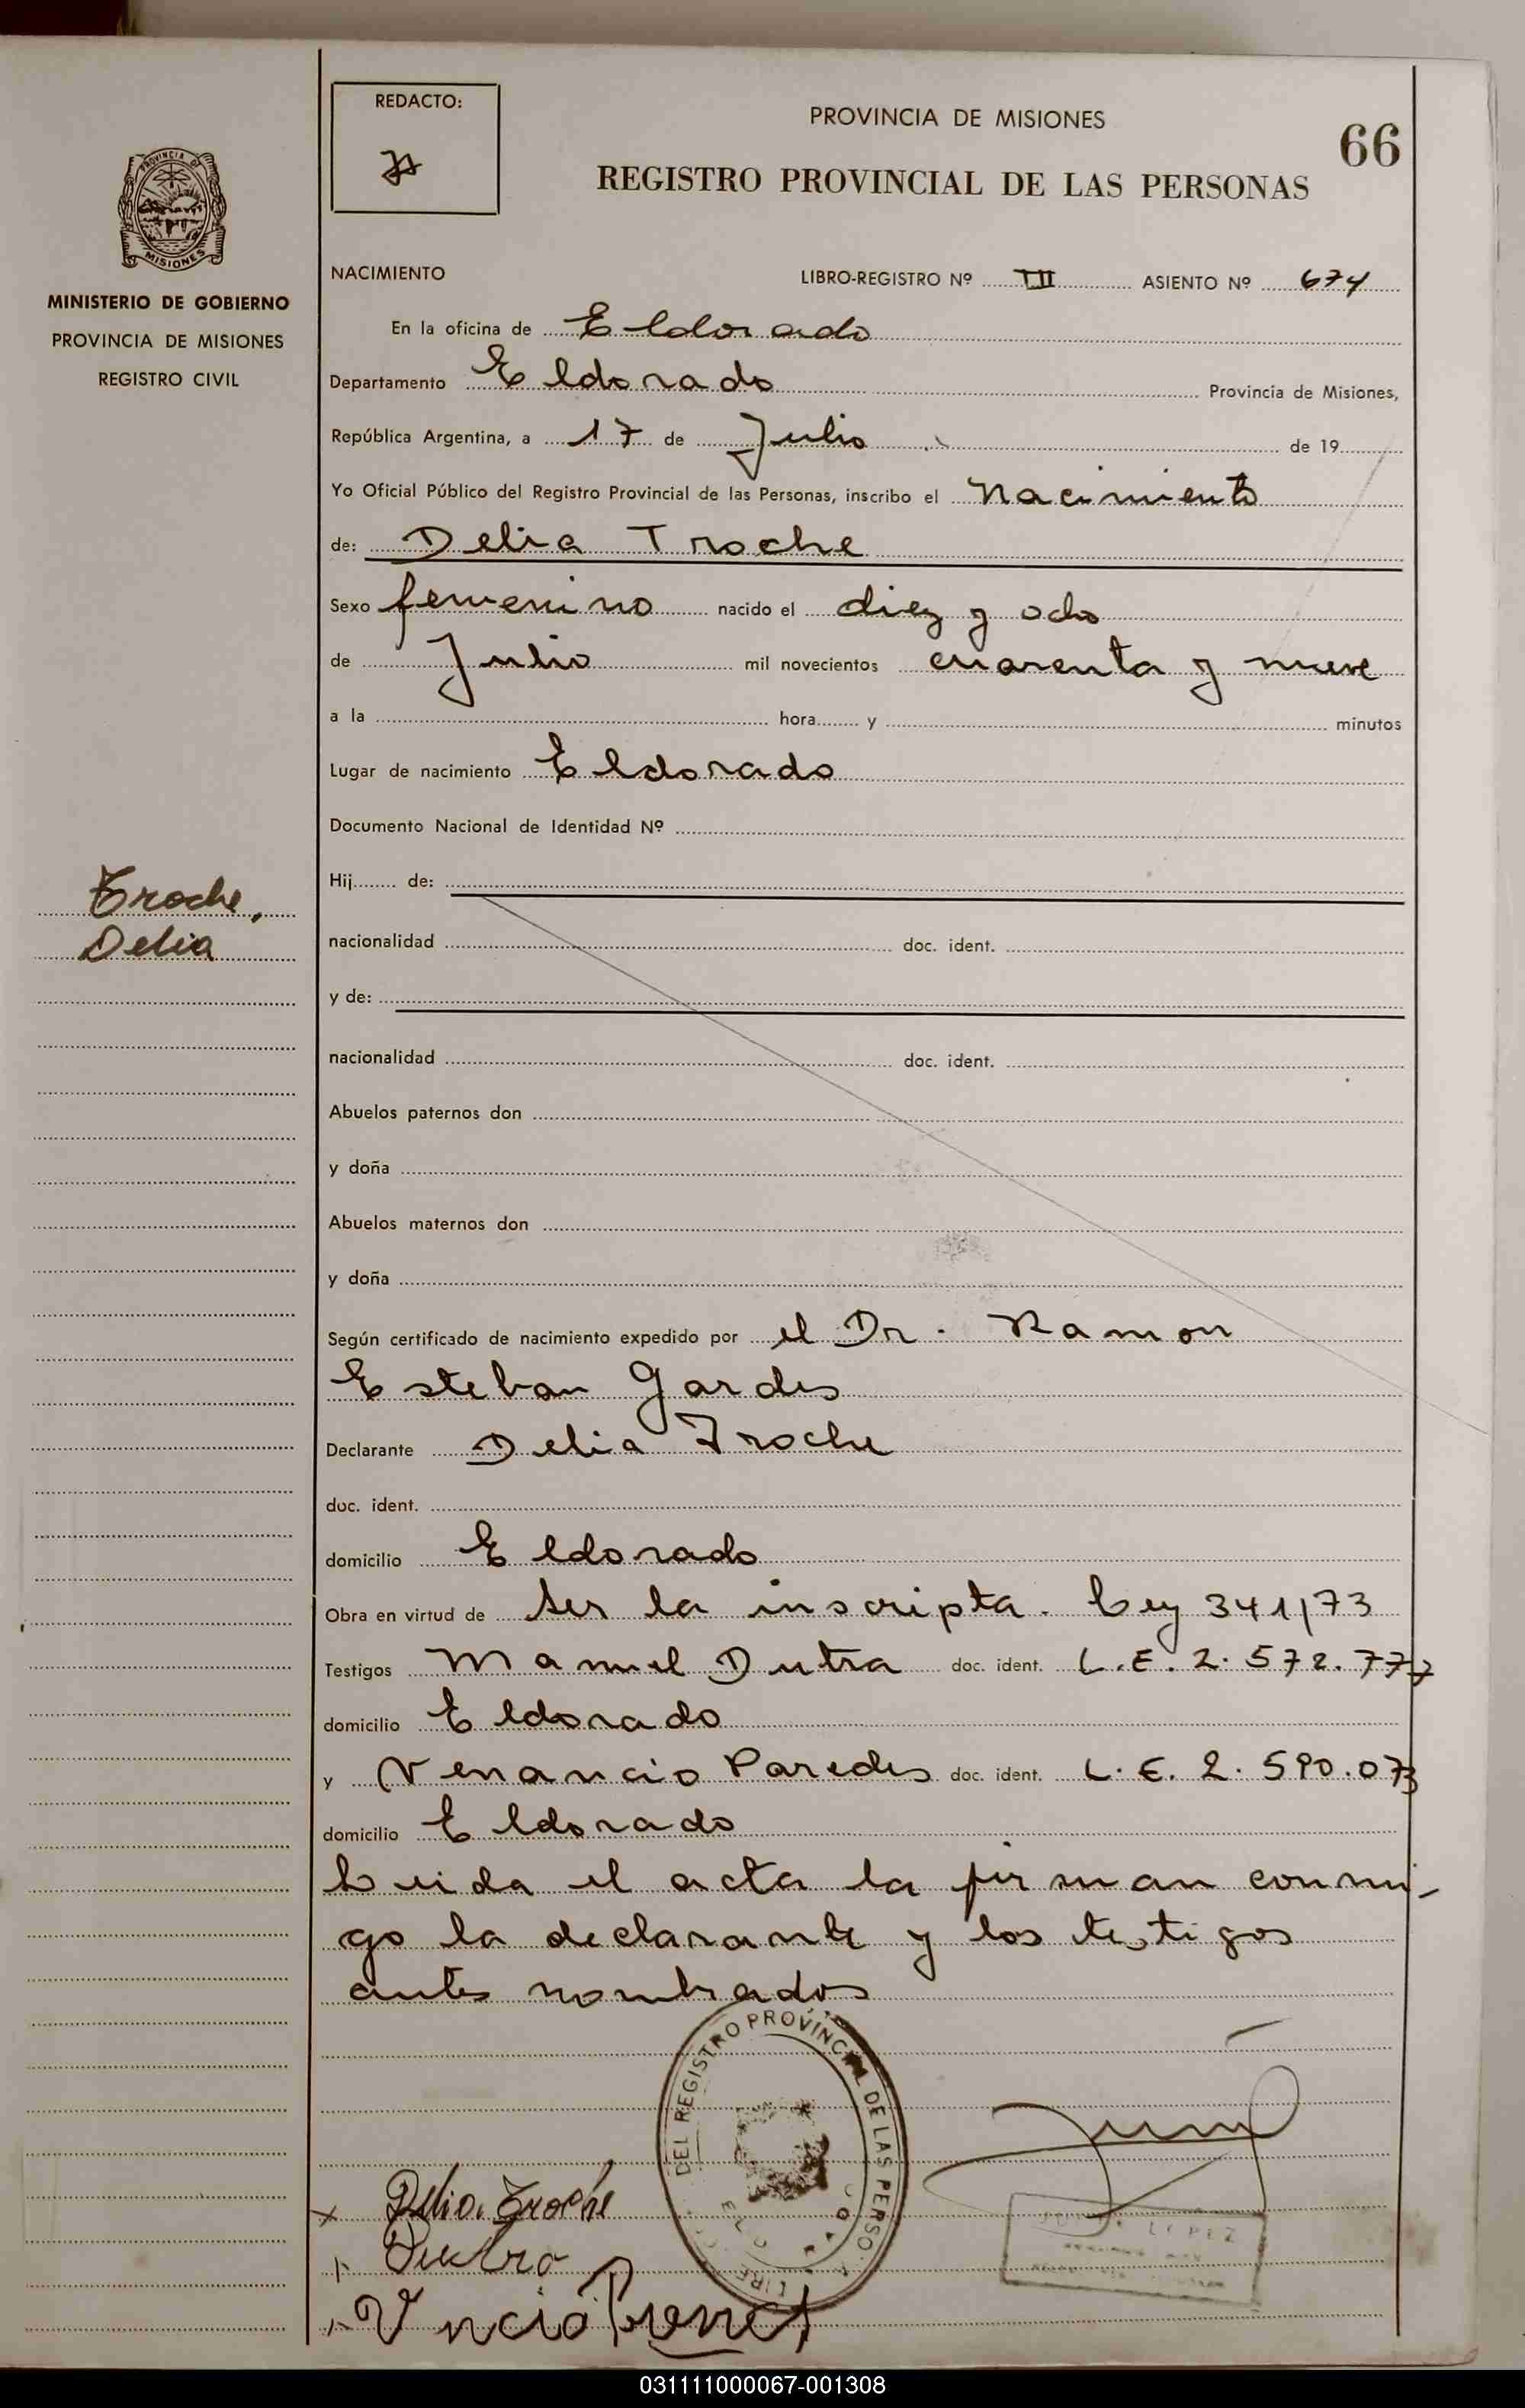 REDACTO:
PROVINCIA DE MISIONES
66
REGISTRO PROVINCIAL DE LAS PERSONAS
PROVINCIA DE
MISIONES
MINISTERIO DE GOBIERNO
PROVINCIA DE MISIONES
REGISTRO CIVIL
NACIMIENTO LIBRO-REGISTRO Nº III ASIENTO Nº 674
En la oficina de Eldorado
Departamento Eldorado Provincia de Misiones,
República Argentina, a 17 de Julio de 19
Yo Oficial Público del Registro Provincial de las Personas, inscribo el Nacimiento
de: Delia Troche
Sexo femenino nacido el diez y ocho
de Julio mil novecientos cuarenta y nueve
a la hora y minutos
Lugar de nacimiento Eldorado
Documento Nacional de Identidad Nº
Hij de:
Troche,
Delia
nacionalidad doc. ident.
y de:
nacionalidad doc. ident.
Abuelos paternos don
y doña
Abuelos maternos don
y doña
Según certificado de nacimiento expedido por el Dr. Ramon
Esteban Gardes
Declarante Delia Troche
doc. ident.
domicilio Eldorado
Obra en virtud de ser la inscripta. Ley 341/73
Testigos Manuel Dutra doc. ident. L.E. 2.572.777
domicilio Eldorado
y Venancio Paredes doc. ident. L.E. 2.590.073
domicilio Eldorado
Leida el acta la firman conmi-
go la declarante y los testigos
antes nombrados
DEL REGISTRO PROVINCIAL DE LAS PERSO
Delia Troche
Dutra
LOPEZ
031111000067-001308